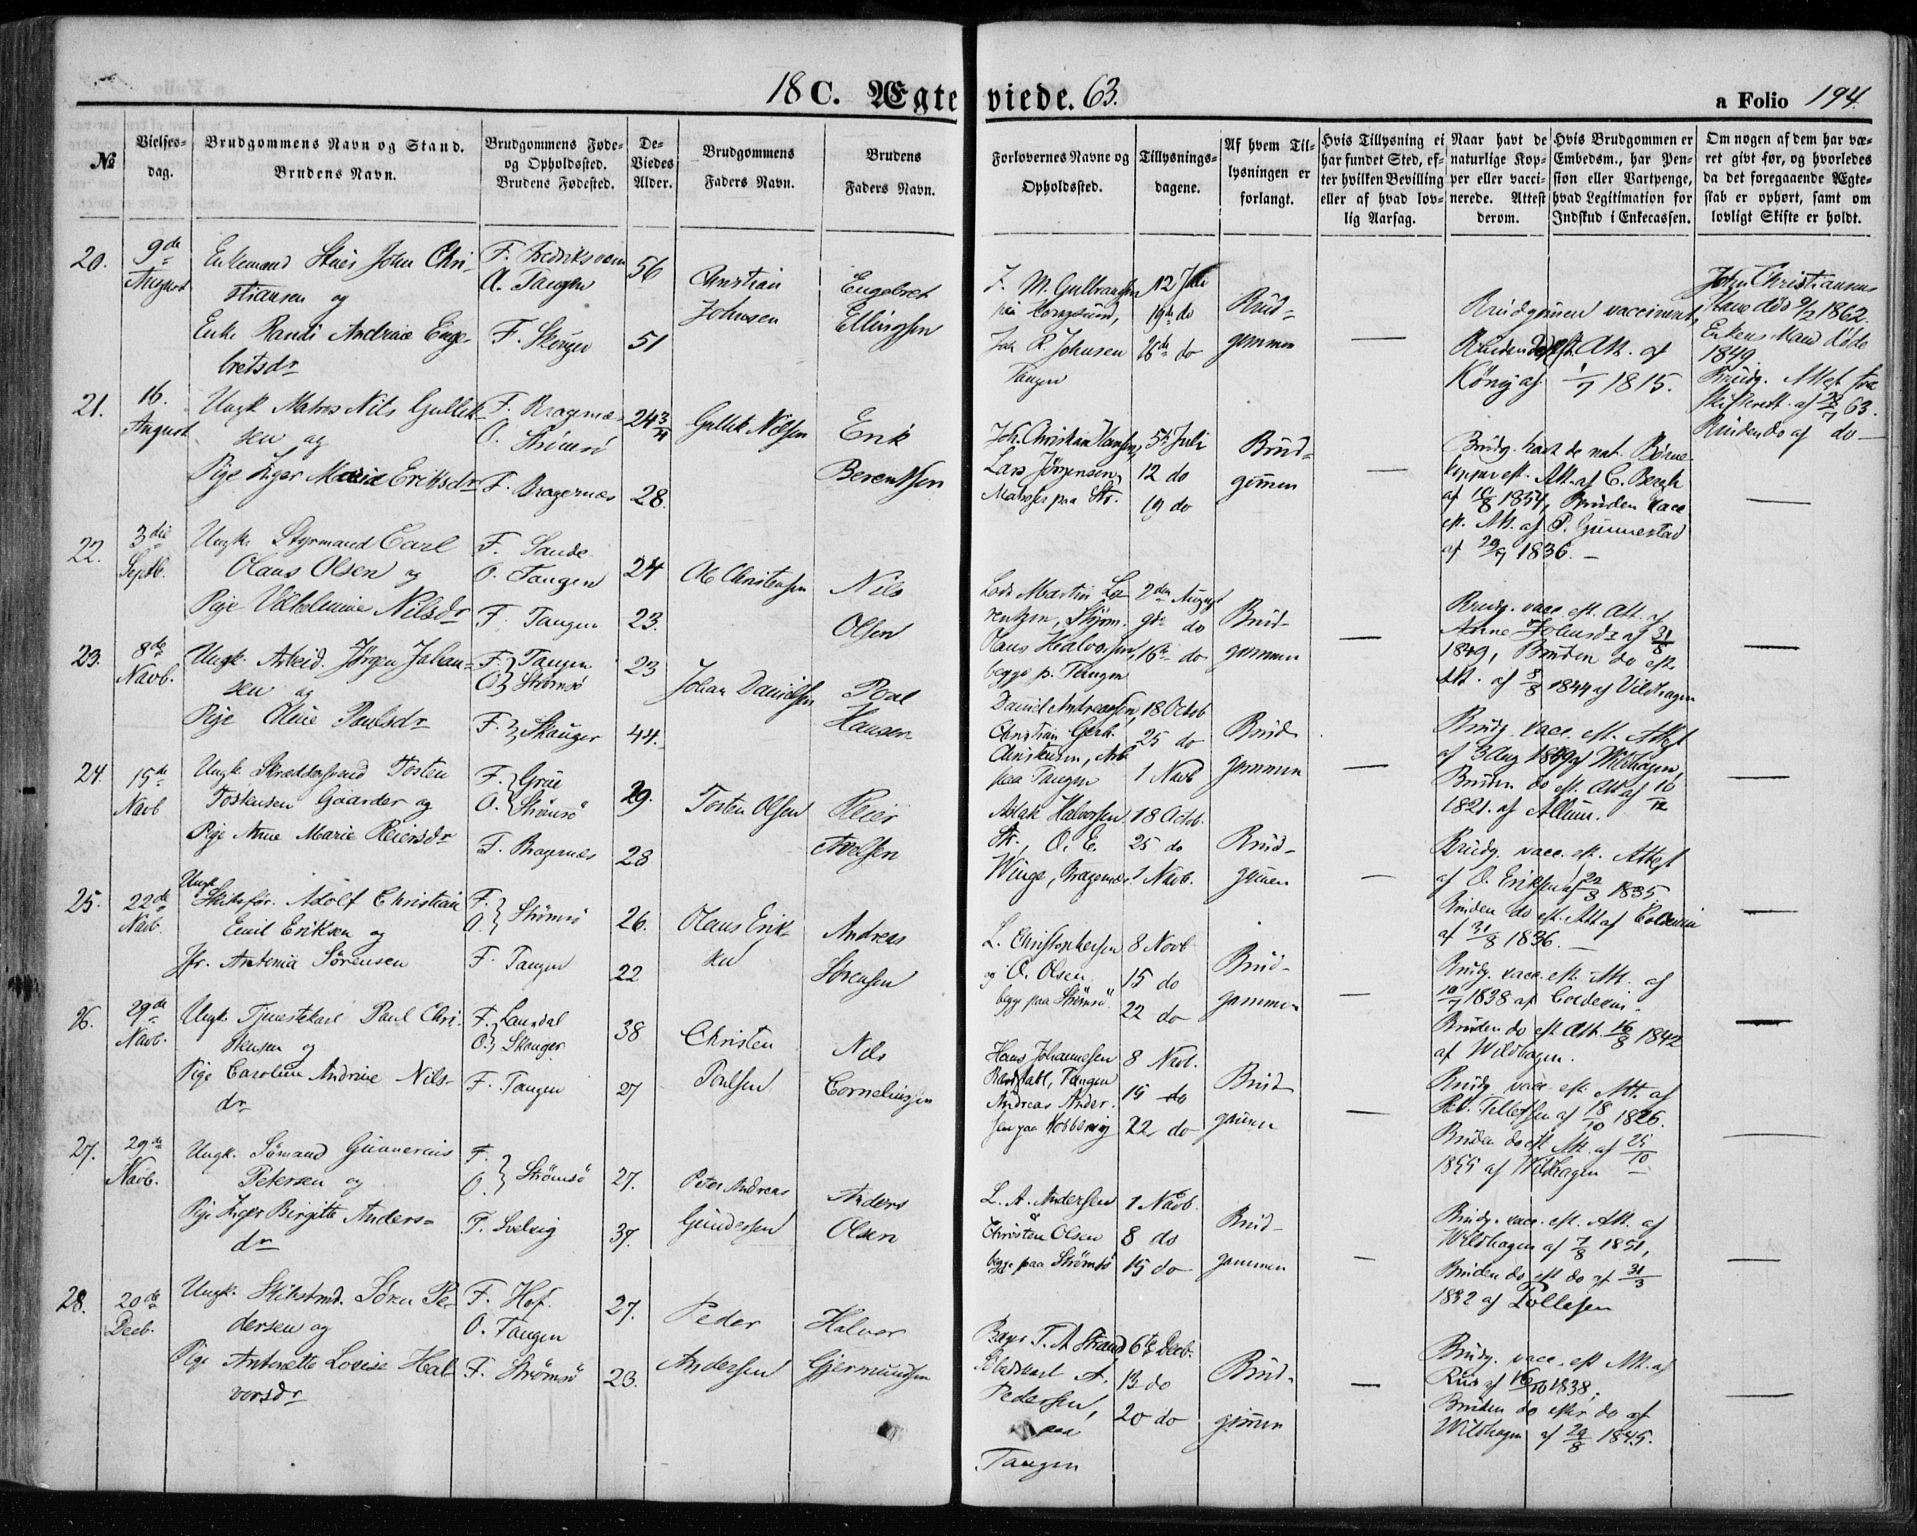 18 C. Ægteviede. 63.
a Folio 194.
№
Vielses-
dag.
Brudgommens Navn og Stand.
Brudens Navn.
Brudgommens Føde-
og Opholdssted.
Brudens Fødested.
De-
Viedes
Alder.
Brudgommens
Faders Navn.
Brudens
Faders Navn.
Forlovernes Navne og
Opholdssted.
Tillysnings-
dagene.
Af hvem Til-
lysningen er
forlangt.
Hvis Tillysning ei
har fundet Sted, ef-
ter hvilken Bevilling
eller af hvad lov-
lig Aarsag.
Naar havt de
naturlige Kop-
per eller vacci-
nerede. Attest
derom.
Hvis Brudgommen er
Embedsm., har Pen-
sion eller Vartpenge,
hvad Legitimation for
Indskud i Enkecassen.
Om nogen af dem har væ-
ret givt før, og hvorledes
da det foregaaende Ægte-
skab er ophørt, samt om
lovligt Skifte er holdt.
20.
9de
August
Enkemand John Chri-
stiansen og
Enke Randi Andraie Enge-
bretsdr
F.
O. Tangen
F. Skouger
56
51
Christian
Johnsen
Engebret
Ellingsen
J. M. Gulbrandsen
Joh. R. Johnsen
Tangen
12 Juli
19de do
26de do
Brud-
gommen
Brudgummen vaccineret,
Att. af
König af 1/7 1815.
John Christiansens
død 9/2 1862.
Enkens Mand døde
1849
Brudg. Attest fra
63.
Brudens do af do
21.
16.
August
Ungk. Matros Nils Gullik-
sen og
Pige Inger Maria Eriksdr
F. Bragernæs
O. Strømsø
F. Bragernæs
24 3/4
28.
Gullik Nilsen
Erik
Berentsen
Joh. Christian Hansen,
Lars Jørgensen,
Matroser paa Str.
5te Juli
12 do
19 do
Brud-
gummen
Brudg. havt de nat. Børne-
kopper eft. Att. af C. Bergh
af 10/8 1854, Bruden vacc
eft. Att. af P. Gunnestad
af 29/9 1836.
22.
3die
Septb.
Ungk. Styrmand Carl
Olaus Olsen og
Pige Vilhelmine Nilsdr
F. Sande
O. Tangen
F. Tangen
24
23.
Ole Christensen
Nils
Olsen
Lods Martin Lo-
rentzen,
Olaus Halvorsen,
begge p. Tangen
2den August
9de do
16de do
Brud-
gommen
Brudg. vacc. eft. Att. af
Anne Johnsdr af 31/8
1849, Bruden do eft.
Att. af 8/8 1844 af Vildhagen
23.
8de
Novb.
Ungk. Arbeid. Jørgen Johan-
sen og
Pige Oline Paulsdr
F. Tangen
O. Strømsø
F. Skauger
23
44.
Johan Danielsen
Poul
Hansen
Daniel Andreassen,
Christian Gerh.
Christensen, Arb.
paa Tangen
18 Octob
25 do
1 Novb
Brud
gommen
Brudg. vacc. eft. Attest
af 3 Aug 1849 af Wildhagen,
Bruden do eft. Att. af 10/12
1821. af Allum.
24.
15de
Novb
Ungk. Skræddersvend Tosten
Tostensen Gaarder og
Pige Anne Marie Reiersdr
F. Grue
O. Strømsø
F. Bragernæs
29.
28
Tosten Olsen
Reier
Axelsen
Aslak Halvorsen
Str., O. E.
Winge, Bragernæs
18 Octob.
25 do
1 Novb.
Brud-
gummen
Brudg. vacc. eft. Attest
af O. Eriksen af 22/8 1835
Bruden do eft. Att af Coldevin
af 31/8 1836.
25.
22de
Novb.
Ungk.
Skibsfør. Adolf Christian
Emil Eriksen og
Jfr. Antonia Sørensen
F.
O. Strømsø
F. Tangen
26.
22
Olaus Erik-
sen
Andreas
Sørensen
L. Christophersen
og O. Olsen
begge paa Strømsø.
8 Novb
15 do
22 do
Brud-
gommen
Brudg. vacc. eft. Att. af
1838 af Coldevin.
Bruden do eft Att. 16/8 1842
af Wildhagen.
26.
29de
Novb.
Ungk. Tjenestekarl Paul Chri-
stensen og
Pige Caroline Andrine Nils-
dr
F. Laurdal
O. Skauger
F. Tangen
38
27
Christen
Poulsen
Nils
Corneliusen
Hans Johannesen
Tangen
Andreas Ander-
sen paa Kobbervig
8 Novb.
15 do
22 do
Brud
gummen
Brudg. vacc. eft. Att. af
Tellefsen af 18/10 1826.
Bruden do eft Att. af 25/10
1855 af Wildhagen
27.
29de
Novb.
Ungk. Sømand Gunnerius
Petersen og
Pige Birgitte Anders-
dr
F.
O. Strømsø
F. Svelvig
27.
37.
Peter Andreas
Gundersen
Anders
Olsen
L. A. Andersen
Christen Olsen
begge paa Strømsø
1 Novb.
8 do
15 do
Brud-
gommen
Brudg. vacc. eft. Att. af
Wildhagen af 7/8 1851,
Bruden do eft do af 31/3
1832 af Tollefsen
28.
20de
Decb.
Ungk. Skibstmd. Søren Pe-
dersen og
Pige Antonette Lovise Hal-
vorsdr
F. Hof.
O. Tangen
F. Strømsø
27.
23.
Peder
Andersen
Halvor
Gjermundsen
Bager T. A. Strand,
A.
Pedersen,
paa
Tangen
6te Decb.
13 do
20 do
Brud-
gummen
Brudg. vacc. eft Att. af
Rud af 16/10 1838;
Bruden do efter do af
Wildhagen af 29/8 1845.